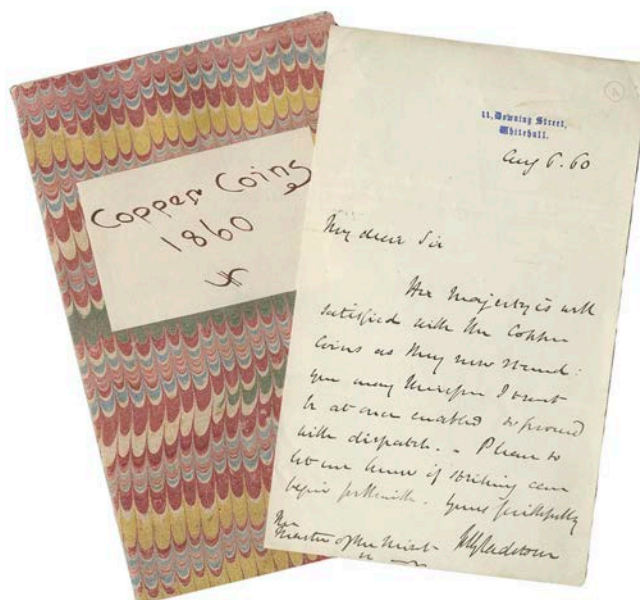 Copper Coins
1860
11, Downing Street,
Whitehall.
Aug 6. 60
My dear Sir
Her Majesty is well
satisfied with the Copper
Coins as they now stand:
you may therefore I trust
be at once enabled to proceed
with dispatch. - Please to
let me know if striking can
begin forthwith. Yours faithfully
WEGladstone
Master of the Mint